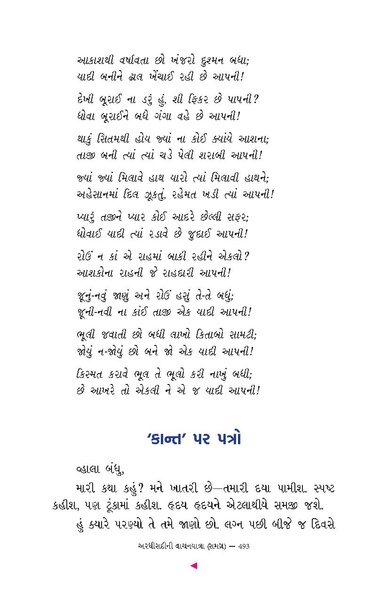 આકાશથી વર્ષાવતા છો ખંજરો દુશ્મન બધા;
યાદી બનીને ઢાલ ખેંચાઈ રહી છે આપની!
દેખી બૂરાઈ ના ડરું હું, શી ફિકર છે પાપની?
ધોવા બૂરાઈને બધે ગંગા વહે છે આપની!
થાકું સિતમથી હોય જ્યાં ના કોઈ ક્યાંયે આશના;
તાજી બની ત્યાં ત્યાં ચડે પેલી શરાબી આપની!
જ્યાં જ્યાં મિલાવે હાથ યારો ત્યાં મિલાવી હાથને;
અહેસાનમાં દિલ ઝૂકતું, રહેમત ખડી ત્યાં આપની!
પ્યારું તજીને પ્યાર કોઈ આદરે છેલ્લી સફર;
ધોવાઈ યાદી ત્યાં રડાવે છે જુદાઈ આપની!
રોઉં ન કાં એ રાહમાં બાકી રહીને એકલો?
આશકોના રાહની જે રાહદારી આપની!
જૂનું-નવું જાણું અને રોઉં હસું તે-તે બધું;
જૂની-નવી ના કાંઈ તાજી એક યાદી આપની!
ભૂલી જવાતી છો બધી લાખો કિતાબો સામટી;
જોયું ન-જોયું છો બને જો એક યાદી આપની!
કિસ્મત કરાવે ભૂલ તે ભૂલો કરી નાખું બધી;
છે આખરે તો એકલી ને એ જ યાદી આપની!
‘કાન્ત’ પર પત્રો
વ્હાલા બંધુ,
મારી કથા કહું? મને ખાતરી છે—તમારી દયા પામીશ. સ્પષ્ટ
કહીશ, પણ ટૂંકામાં કહીશ. હૃદય હૃદયને એટલાથીયે સમજી જશે.
હું ક્યારે પરણ્યો તે તમે જાણો છો. લગ્ન પછી બીજે જ દિવસે
અરધીસદીની વાચનયાત્રા (સમગ્ર) — 493